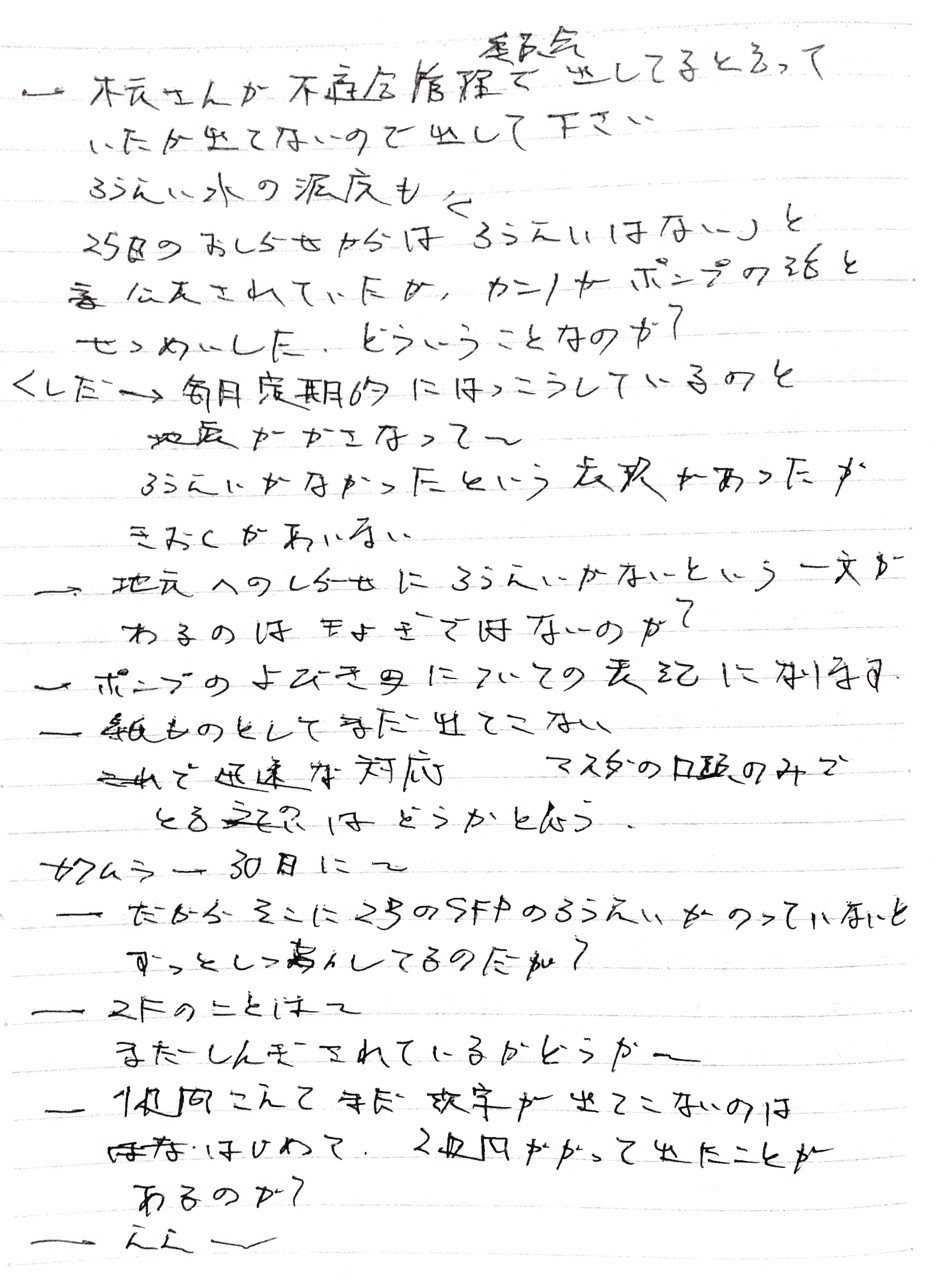 委員会
ー 木元さんが不適合管理で出してると言って
いたが出てないので出して下さい
ろうえい水の温度も
25日のおしらせからは「ろうえいはない」と
公表されていたが、カンノがポンプの話と
せつめいした、どういうことなのか?
くしだ→ 毎月定期的にはっこうしているのと
地震がかさなって〜
ろうえいがなかったという表現があったが
きおくがあいまい
→ 地元へのしらせにろうえいがないという一文が
あるのはきょぎではないのか?
ー ポンプのよびき口についての表記になります.
ー 紙ものとしてまだ出てこない
で迅速な対応 マスダの口頭のみで
とる はどうかと思う.
カワムラー 30日に〜
ー だからそこに2号のSFPのろうえいがのっていないと
ずっとしつもんしてるのだが?
ー 2Fのことは〜
まだしんぎされているかどうか〜
ー 1週間こえてまだ数字が出てこないのは
はじめて. 2週間かかって出たことが
あるのか?
ー ええ〜